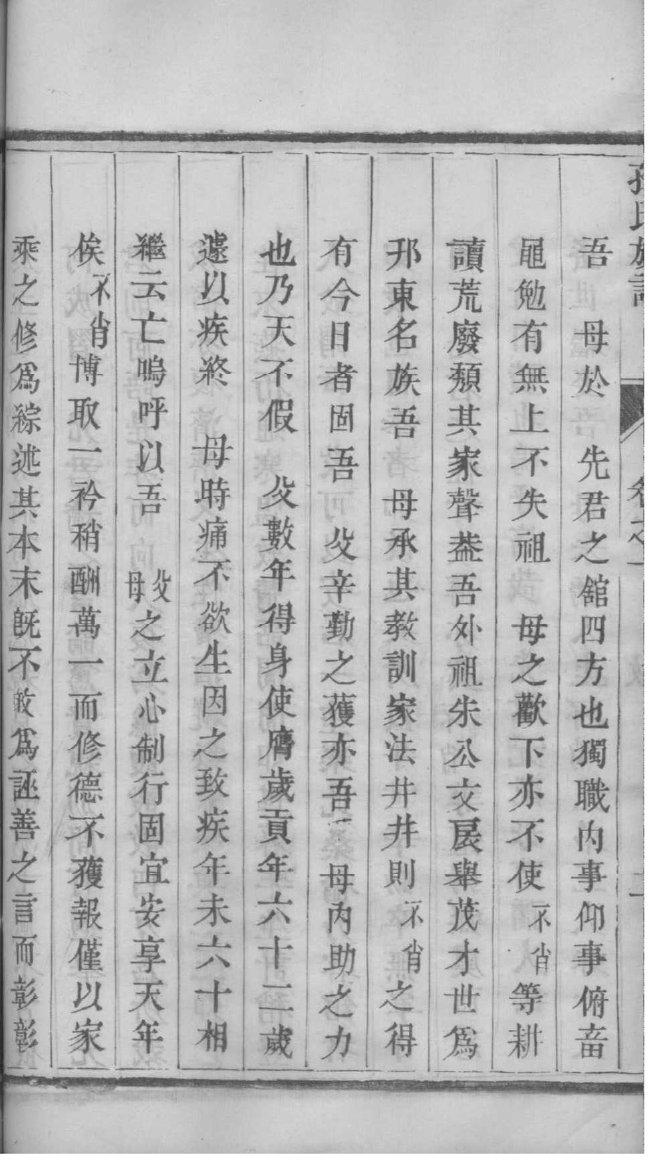 孫氏族譜
卷之一
吾　母於　先君之館四方也獨職內事仰事俯畜
黽勉有無上不失祖　母之歡下亦不使不肖等耕
讀荒廢頹其家聲葢吾外祖朱公文宸舉茂才世爲
邘東名族吾　母承其教訓家法井井則不肖之得
有今日者固吾　父辛勤之獲亦吾　母內助之力
也乃天不假　父數年得身使膺歲貢年六十二歲
遽以疾終　母時痛不欲生因之致疾年未六十相
繼云亡嗚呼以吾　父母之立心制行固宜安享天年
俟不肖博取一衿稍酬萬一而修德不獲報僅以家
乘之修爲綜述其本末旣不敢爲誣善之言而彰彰